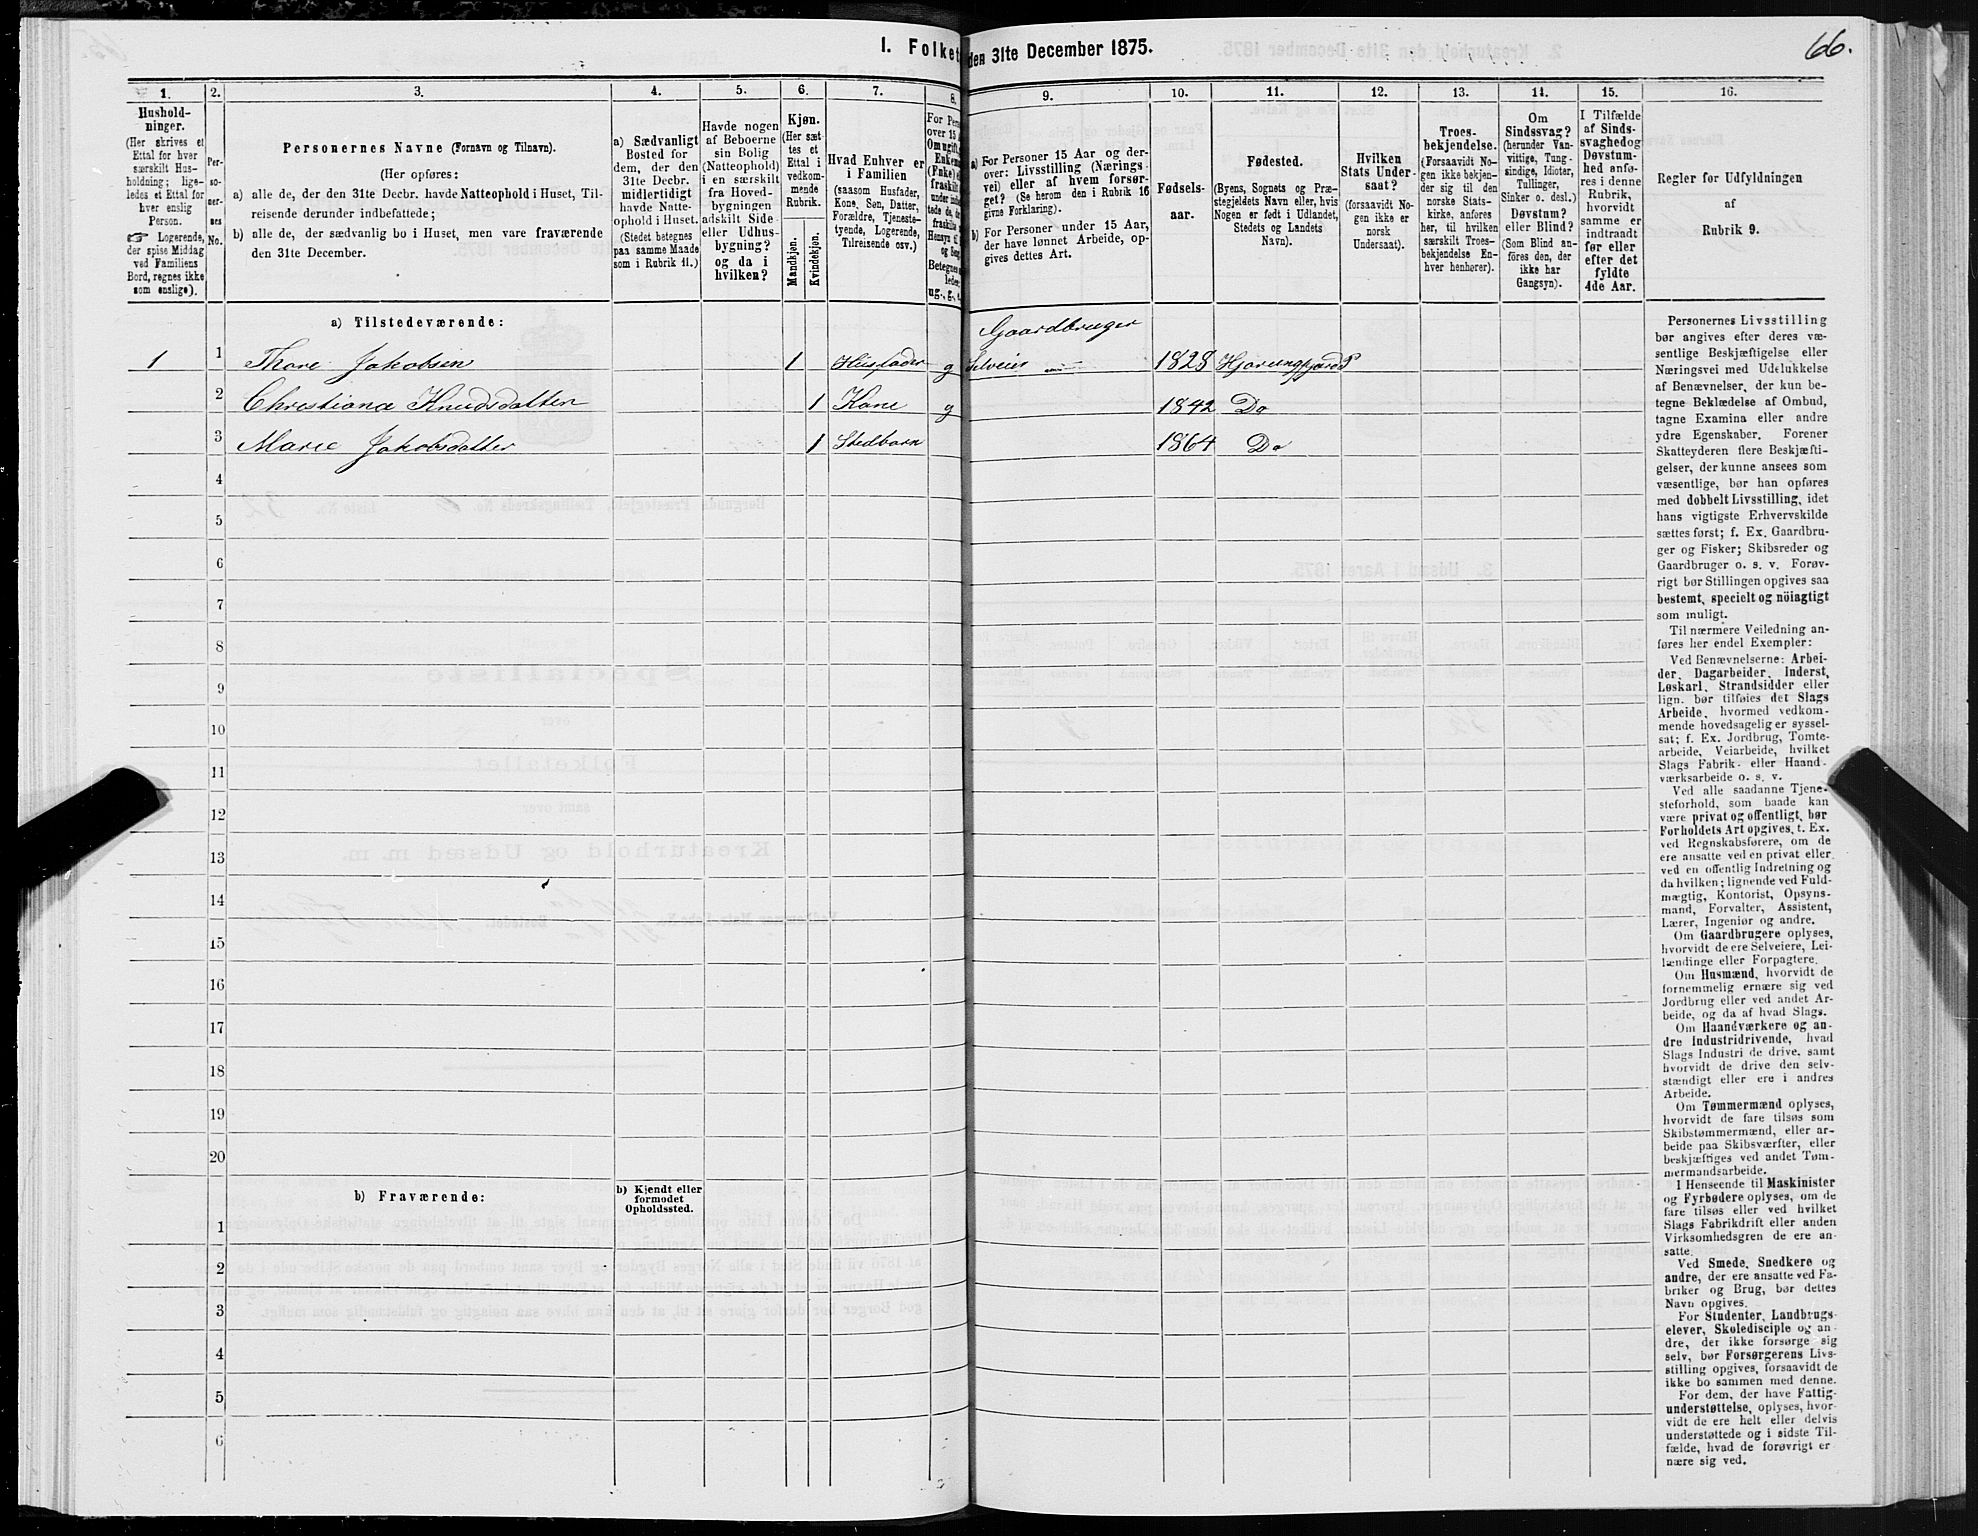 1. Folket
den 31te December 1875.
66.
1.
2.
3.
4.
5.
6.
7.
8.
9.
10.
11.
12.
13.
14.
15.
16.
Hushold-
ninger.
(Her skrives et
Ettal for hver
særskilt Hus-
holdning; lige-
ledes et Ettal for
hver enslig
Person.
☞ Logerende,
der spise Middag
ved Familiens
Bord, regnes ikke
som enslige).
Per-
so-
ner-
nes
No.
Personernes Navne (Fornavn og Tilnavn).
(Her opføres:
a) alle de, der den 31te Decbr. havde Natteophold i Huset, Til-
reisende derunder indbefattede;
b) alle de, der sædvanlig bo i Huset, men vare fraværende
den 31te December.
a) Sædvanligt
Bosted for
dem, der den
31te Decbr.
midlertidigt
havde Natte-
ophold i Huset.
(Stedet betegnes
paa samme Maade
som i Rubrik 11.)
Havde nogen
af Beboerne
sin Bolig
(Natteophold)
i en særskilt
fra Hoved-
bygningen
adskilt Side-
eller Udhus-
bygning?
og da i
hvilken?
Kjøn.
(Her sæt-
tes et
Ettal i
vedkom-
mende
Rubrik.
Mandkjøn.
Kvindekjøn.
Hvad Enhver er
i Familien
(saasom Husfader,
Kone, Søn, Datter,
Forældre, Tjeneste-
tyende, Logerende,
Tilreisende osv.)
For Pers
over 15 A
Om ugift,
Enkem
(Enke) e
fraskilt
under indbe
tede de, de
fraskilte
Hensyn ti
og Seng
Betegnes
ledes
ug., g.,
a) For Personer 15 Aar og der-
over: Livsstilling (Nærings-
vei) eller af hvem forsør-
get? (Se herom den i Rubrik 16
givne Forklaring).
b) For Personer under 15 Aar,
der have lønnet Arbeide, op-
gives dettes Art.
Fødsels-
aar.
Fødested.
(Byens, Sognets og Præ-
stegjeldets Navn, eller, hvis
Nogen er født i Udlandet,
Stedets og Landets
Navn).
Hvilken
Stats Under-
saat?
(forsaavidt No-
gen ikke er
norsk
Undersaat).
Troes-
bekjendelse.
(Forsaavidt No-
gen ikke bekjen-
der sig til den
norske Stats-
kirke, anføres
her, til hvilken
særskilt Troes-
bekjendelse En-
hver henhører).
Om
Sindssvag?
(herunder Van-
vittige, Tung-
sindige, Idioter,
Tullinger,
Sinker o. desl.)
Døvstum?
eller Blind?
(Som Blind an-
føres den, der
ikke har
Gangsyn).
I Tilfælde
af Sinds-
svaghed og
Døvstum-
hed anfø-
res i denne
Rubrik,
hvorvidt
samme er
indtraadt
før eller
efter det
fyldte
4de Aar.
Regler for Udfyldningen
af
Rubrik 9.
a) Tilstedeværende:
Gaardbruger
1 1 Thore Jakobsen 1 Husfader g Selveier 1828 Hjørungfjord P
2 Christiana Knudsdatter 1 Kone g 1842 Do
3 Marie Jakobsdatter 1 Stedbarn 1864 Do
4
5
6
7
8
9
10
11
12
13
14
15
16
17
18
19
20
b) Fraværende:
b) Kjendt eller
formodet
Opholdssted.
1
2
3
4
5
6
Personernes Livsstilling
bør angives efter deres væ-
sentlige Beskjæftigelse eller
Næringsvei med Udelukkelse
af Benævnelser, der kun be-
tegne Beklædelse af Ombud,
tagne Examina eller andre
ydre Egenskaber. Forener
Skatteyderen flere Beskjæfti-
gelser, der kunne ansees som
væsentlige, bør han opføres
med dobbelt Livsstilling, idet
hans vigtigste Erhvervskilde
sættes først; f. Ex. Gaardbru-
ger og Fisker; Skibsreder og
Gaardbruger o. s. v. Forøv-
rigt bør Stillingen opgives saa
bestemt, specielt og nöiagtigt
som muligt.
Til nærmere Veiledning an-
føres her endel Exempler:
Ved Benævnelserne: Arbei-
der, Dagarbeider, Inderst,
Løskarl, Strandsidder eller
lign. bør tilføies det Slags
Arbeide, hvormed vedkom-
mende hovedsagelig er syssel-
sat; f. Ex. Jordbrug, Tomte-
arbeide, Veiarbeide, hvilket
Slags Fabrik- eller Haand-
værksarbeide o. s. v.
Ved alle saadanne Tjene-
steforhold, som baade kan
være privat og offentligt, bør
Forholdets Art opgives, t. Ex.
ved Regnskabsførere, om de
ere ansatte ved en privat eller
ved en offentlig Indretning og
da hvilken; lignende ved Fuld-
mægtig, Kontorist, Opsyns-
mand, Forvalter, Assistent,
Lærer, Ingeniør og andre.
Om Gaardbrugere oplyses,
hvorvidt de ere Selveiere, Lei-
lændinge eller Forpagtere.
Om Husmænd, hvorvidt de
fornemmelig ernære sig ved
Jordbrug eller ved andet Ar-
beide, og da af hvad Slags.
Om Haandværkere og an-
dre Industridrivende, hvad
Slags Industri de drive, samt
hvorvidt de drive den selv-
stændigt eller ere i andres
Arbeide.
Om Tømmermænd oplyses,
hvorvidt de fare tilsøs som
Skibstømmermænd, eller ar-
beide paa Skibsværfter, eller
beskjæftiges ved andet Tøm-
mermandsarbeide.
I Henseende til Maskinister
og Fyrbødere oplyses, om de
fare tilsøs eller ved hvilket
Slags Fabrikdrift eller anden
Virksomhedsgren de ere an-
satte.
Ved Smede, Snedkere og
andre, der ere ansatte ved Fa-
briker og Brug, bør dettes
Navn opgives.
For Studenter, Landbrugs-
elever, Skoledisciple og an-
dre, der ikke forsørge sig
selv, bør Forsørgerens Livs-
stilling opgives, forsaavidt de
ikke bo sammen med denne.
For dem, der have Fattig-
understøttelse, oplyses, hvor-
vidt de ere helt eller delvis
understøttede og i sidste Til-
fælde, hvad de forøvrigt er
nære sig ved.